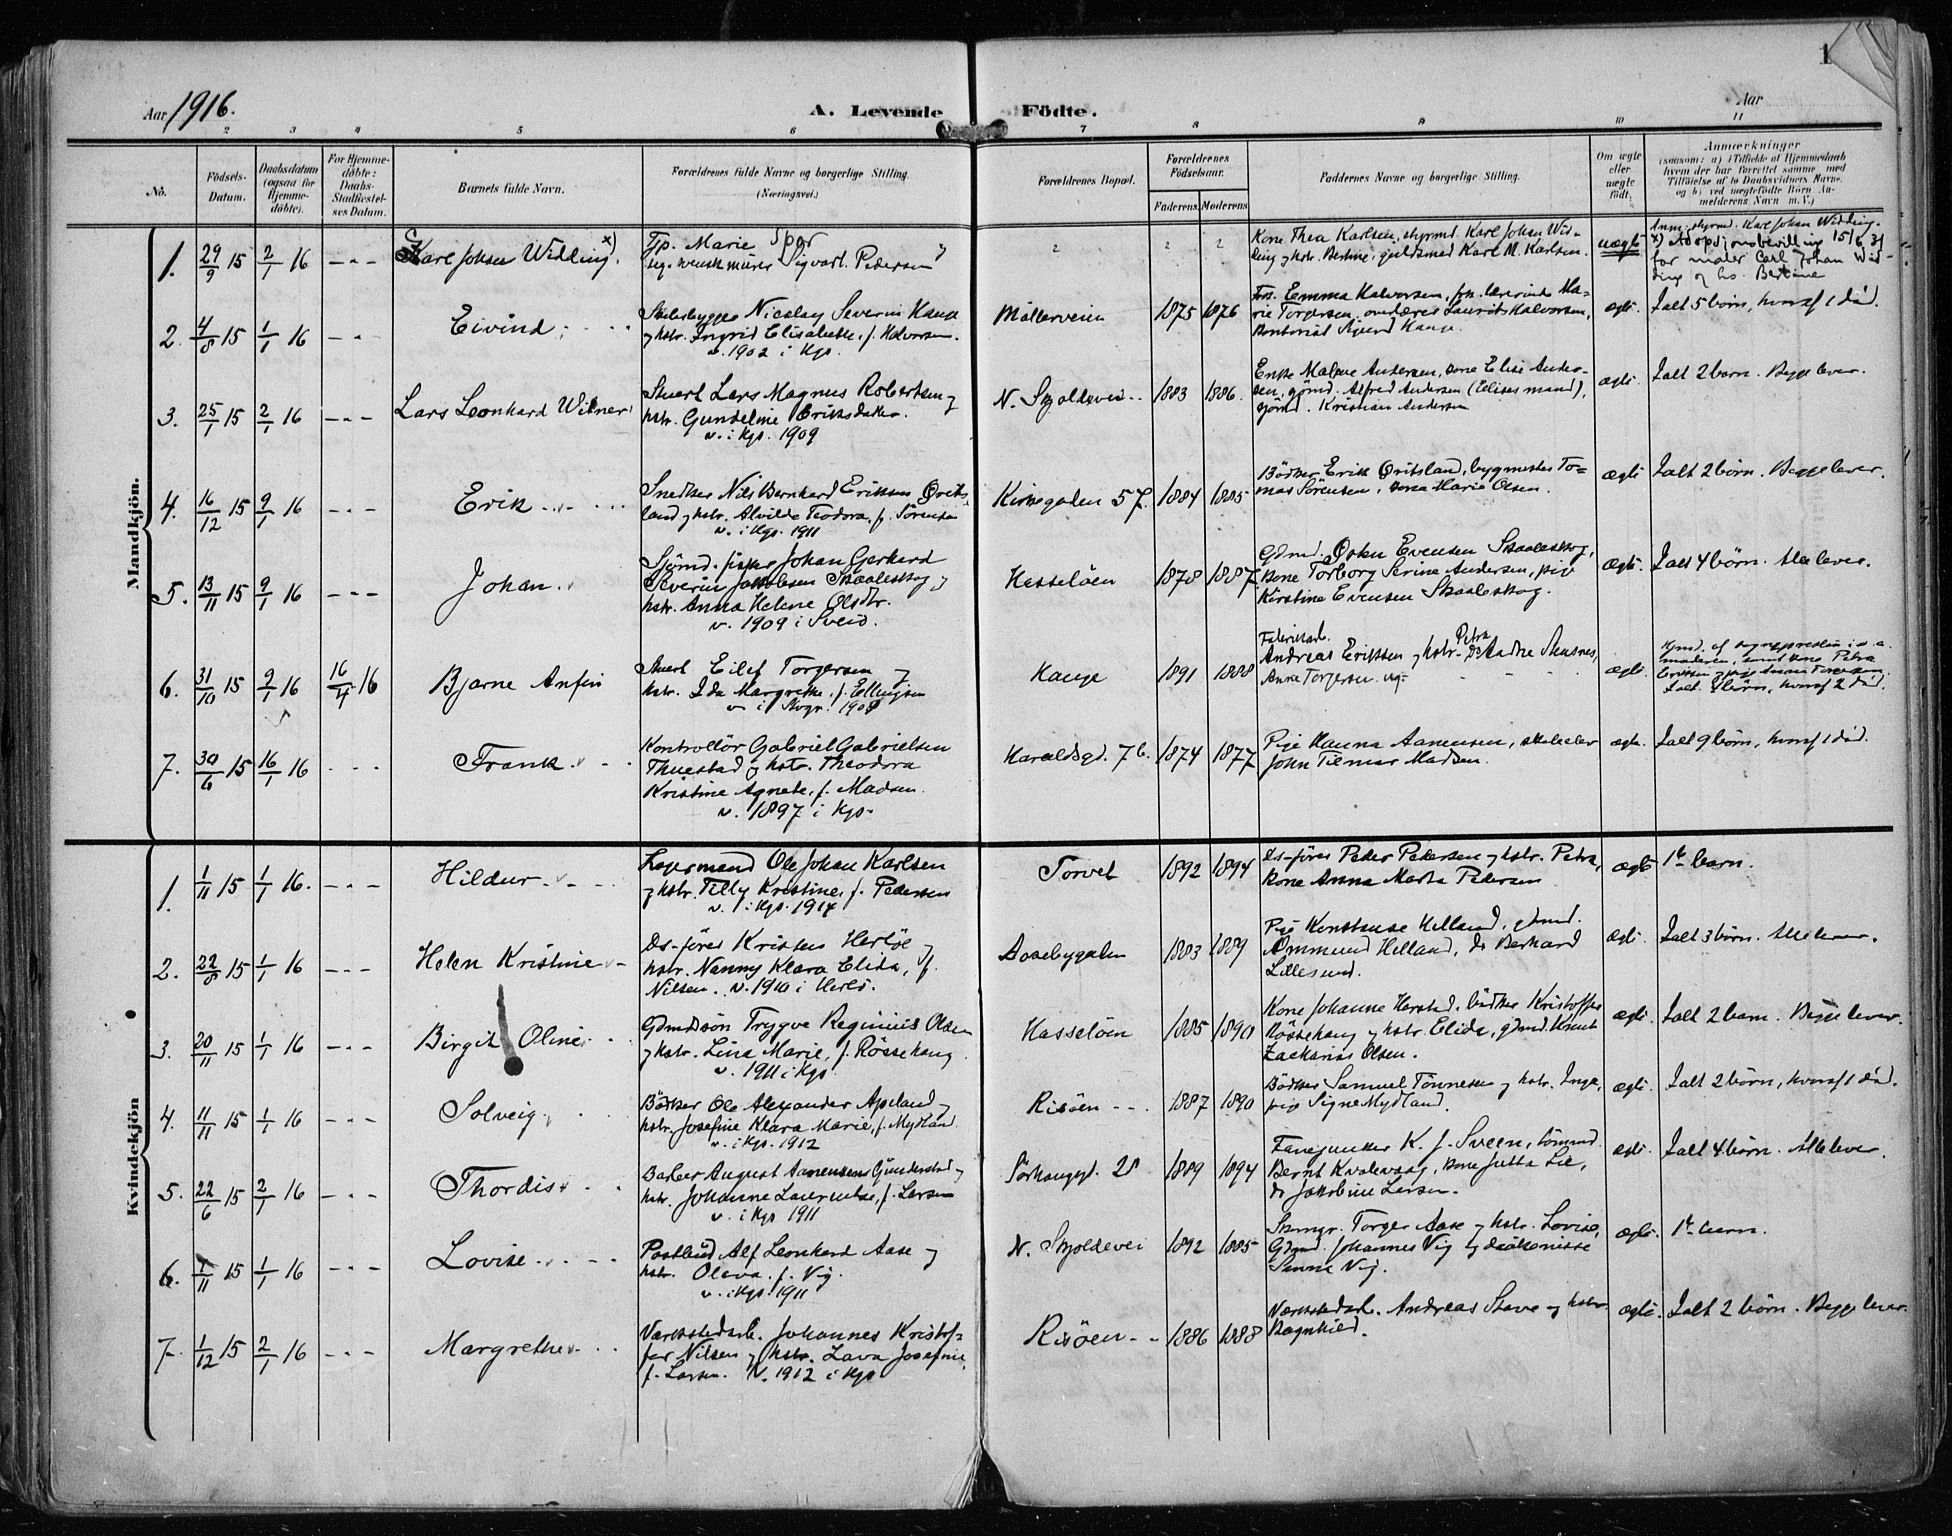 Aar 1916.
A. Levende Födte.
Aar
1
2 3 4 5 6 7 8 9 10 11
No.
Födsels-Datum.
Daabsdatum (ogsaa for Hjemmedöbte).
For Hjemmedöbte: Daabs-Stadfæstelses Datum.
Barnets fulde Navn.
Forældrenes fulde Navne og borgerlige Stilling. (Næringsvei.)
Forældrenes Bopæl.
Forældrenes Födselsaar.
Faderens. Moderens.
Faddernes Navne og borgerlige Stilling.
Om ægte eller uægte födt.
Anmærkninger
(saasom: a) i Tilfælde af Hjemmedaab
hvem der har forrettet samme med
Tilföielse af to Daabsvidners Navne.
og b) ved uægtefödte Börn An-
melderens Navn m. V.)
Mandkjön.
1. 29/9 15 2/1 16 - - - Karl Johan Widding x)
Tp. Marie Spor
Sigvart Pedersen
Kone Thea Karlsen, styrmd. Karl Johan Wid-
ding og hstr. Bertine, guldsmed Karl M. Karlsen.
uægte
Anm. styrmd. Karl Johan Widding.
x) Adopsjonsbevilling 15/6 31
for maler Carl Johan Wid-
ding og hs. Bertine
2. 4/8 15 1/1 16 - - - Eivind
Skibsbygger Nicolay Severin Hauge
og hstr. Ingrid Elisabeth, f. Halvorsen.
v. 1902 i Kgs.
Möllerveien 1875 1876
Emma Halvorsen, lærerinde Ma-
rie Torgersen, Laurits Halvorsen,
Kontorist Sigurd Hauge.
ægte. Ialt 5 börn, hvoraf 1 död.
3. 25/1 15 2/1 16 - - - Lars Leonhard Wilner
Stuert Lars Magnus Robertsen og
hstr. Gundeline Eriksdatter.
v. i Kgs. 1909
N. Skjoldevei 1883 1886.
Enke Malene Andersen, kone Elise Ander-
sen, sjömd. Alfred Andersen (Elises mand),
sjömd. Kristian Andersen
ægte. Ialt 2 barn. Begge lever.
4. 16/12 15 9/1 16 - - - Erik
Snedker Nils Bernhard Eriksen Örits-
land og hstr. Alvilde Teodora, f. Sörensen
v. i Kgs. 1911
Kirkegaden 57. 1884 1885
Bödker Erik Öritsland, bygmester To-
mas Sörensen, kone Marie Olsen.
ægte Ialt 2 börn. Begge lever.
5. 13/11 15 9/1 16 - - - Johan
Sjömd. fisker Johan Gerhard
Severin Jakobsen Skaaleskog og
hstr. Anna Helene Olsdtr.
v. 1909 i Sveio.
Hasselöen 1878 1887.
Gdmd. Evensen Skaaleskog,
kone Torborg Serine Andersen, pige
Kirstine Evensen Skaaleskog.
ægte. Ialt 4 börn. Alle lever.
6. 31/10 15 9/1 16 16/4 16 Bjarne Anfin
Stuert Eilef Torgersen og
hstr. Ida Margrethe, f. Ellingsen
v. i Skgr. 1909
Hauge 1891 1888
Fabrikarb.
Andreas Eriksen og hstr. Petra
Anna Torgersen
ægte. moderen, samt kone Petra
Eriksen og pige Anna Torgersen.
Ialt 4 börn, hvoraf 2 död.
7. 30/6 15 16/1 16 - - - Frank
Kontrollör Gabriel Gabrielsen
Thuestad og hstr. Theodora
Kristine Agnete, f. Madsen.
v. 1897 i Kgs.
Haraldsgd. 7b. 1874 1877
Pige Hanna Aanensen, skoleelev
John Tilmar Madsen.
ægte. Ialt 9 börn, hvoraf 1 död.
Kvindekjön
1. 1/11 15 1/1 16. - - - Hildur
Lagermand Ole Johan Karlsen
og hstr. Tilly Kristine, f. Pedersen
v. i Kgs. 1914
Torvet 1892 1894
Ds-förer Peder Pedersen og hstr. Petra,
kone Anna Marta Pedersen
ægte 1te barn.
2. 22/8 15 1/1 16 - - - Helen Kristine
Ds-förer Kristen Herlöe og
hstr. Nanny Klara Elida, f.
Nilsen. v. 1910 i Herlö.
Aasebygaden 1883 1889
Pige Konstanse Helland, gdmd.
Ommund Helland, do Berhard
Lillesund.
ægte. Ialt 3 börn. Alle lever.
3. 20/11 15 1/1 16 - - - Birgit Oline
Gdmdssön Trygve Reginius Olsen
og hstr. Lina Marie, f. Rössehaug
v. 1911 i Kgs.
Hasselöen 1885 1890
Kone Johanne Harstad, bödker Kristoffer
Rössehaug og hstr. Elida, gdmd. Knut
Zackarias Olsen.
ægte. Ialt 2 barn. Begge lever.
4. 11/11 15 1/1 16 - - - Solveig
Bödker Ole Alexander Apeland og
hstr. Josefine Klara Marie, f. Mydland.
v. i Kgs. 1912
Risöen 1887 1890
Bödker Samuel Tönnesen og hstr. Inga,
pige Signe Mydland.
ægte. Ialt 2 börn, hvoraf 1 död.
5. 22/6 15 2/1 16 - - - Thordis
Barber August Aanensen Gunderstad og
hstr. Johanne Laurentse, f. Larsen
v. i Kgs 1911
Sörhauggd. 28 1889 1894
Fanejunker K. J. Sveen, tömmd.
Bernt Kvalevaag, kone Jutta Lie,
do Jakobine Larsen.
ægte. Ialt 4 börn. Alle lever.
6. 1/11 15 1/1 16 - - - Lovise
Postbud Alf Leonhard Aase og
hstr. Oleva, f. Vig.
v. i Kgs. 1911
N. Skjoldevei 1892 1885
Torger Aase og hstr. Lovise,
Gdmd. Johannes Vig og diakonisse
Vig.
ægte. 1te barn.
7. 1/12 15 2/1 16 - - - Margrethe
Værkstedarb. Johannes Kristof-
fer Nilsen og hstr. Lava Josefine,
f. Larsen. v. 1912 i Kgs
Risöen 1886 1888
Værkstedarb. Andreas Stave og hstr.
Ragnhild.
ægte. Ialt 2 börn. Begge lever.